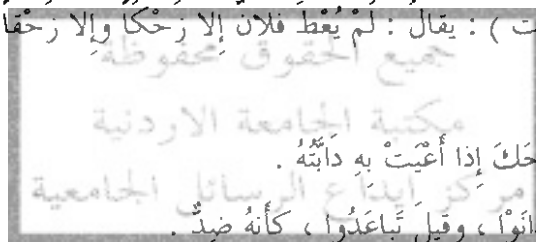 ت ) : يقالُ : لَمْ يُعْطَ فلانٌ إِلا زَحْكًا وإِلا زَحْقًا
جميع الحقوق محفوظة
مكتبة الجامعة الاردنية
حَكَ إِذا أَعْيَتْ بِهِ دَابَّتُهُ .
مركز ايداع الرسائل الجامعية
دانَوْا ، وقيلَ تَباعَدُوا ، كأَنهُ ضِدٌّ .